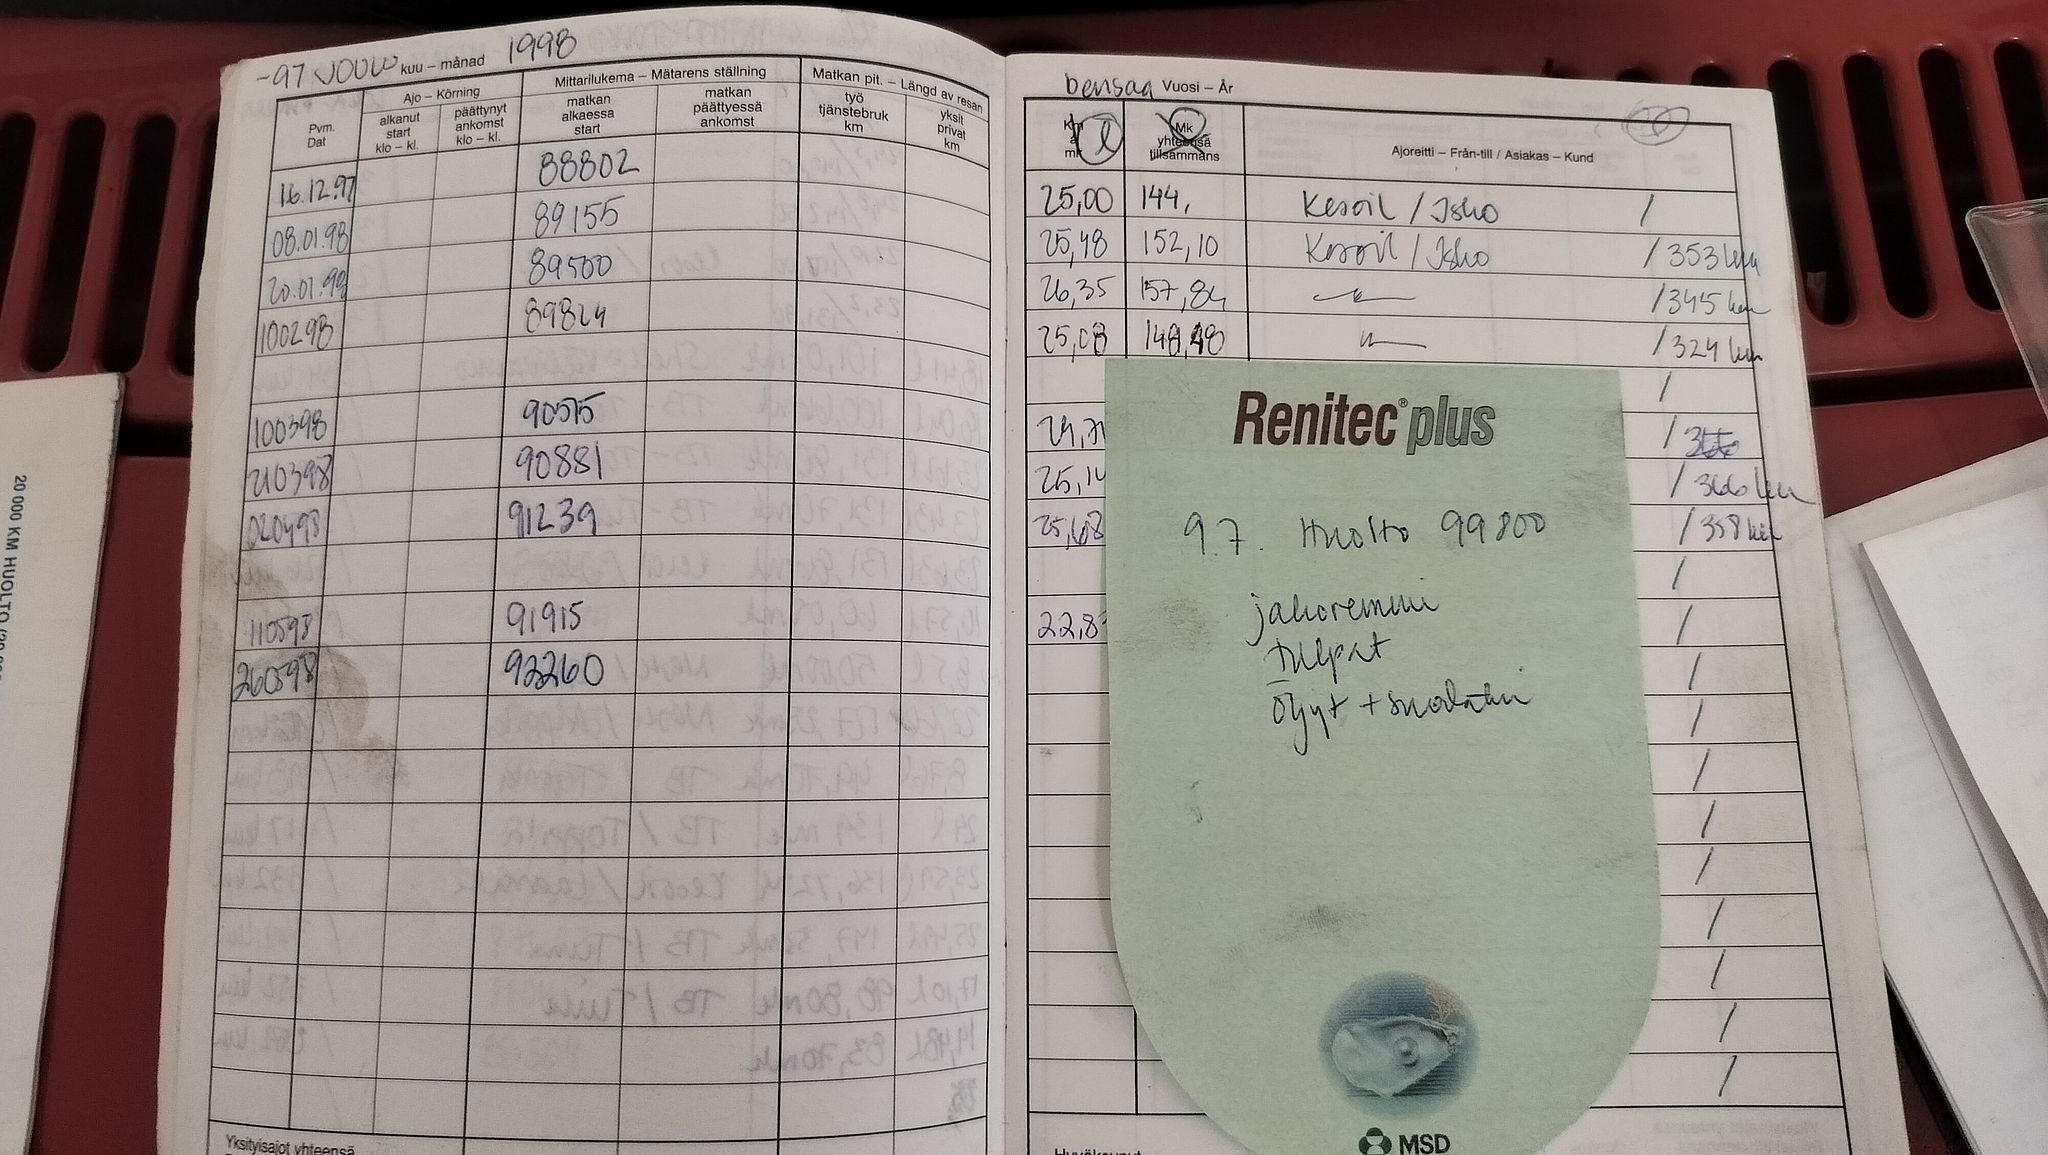 -97 JOULU kuu – månad 1998
Pvm. Dat
Ajo – Körning
alkanut start klo – kl.
päättynyt ankomst klo – kl.
Mittarilukema – Mätarens ställning
matkan alkaessa start
matkan päättyessä ankomst
Matkan pit. – Längd av resan
työ tjänstebruk km
yksit privat km
16.12.97 88802
08.01.98 89155
20.01.98 89500
100298 89824
100398 90515
210398 90881
020498 91239
110598 91915
260598 92260
Yksityisajot yhteensä
bensaa Vuosi – År
l
Mk yhteensä tillsammans
Ajoreitti – Från-till / Asiakas – Kund
25,00 144, Kesoil / Isko /
25,48 152,10 Kesoil / Isko / 353 km
26,35 157,84 / 345 km
25,08 148,48 / 324 km
/
/
25,14 / 366 km
25,68 / 358 km
/
22,8 /
/
/
/
/
/
/
/
/
/
Renitec® plus
9.7. Huolto 99800
jakoremmi
tulpat
öljyt + suodatin
MSD
20 000 KM HUOLTO